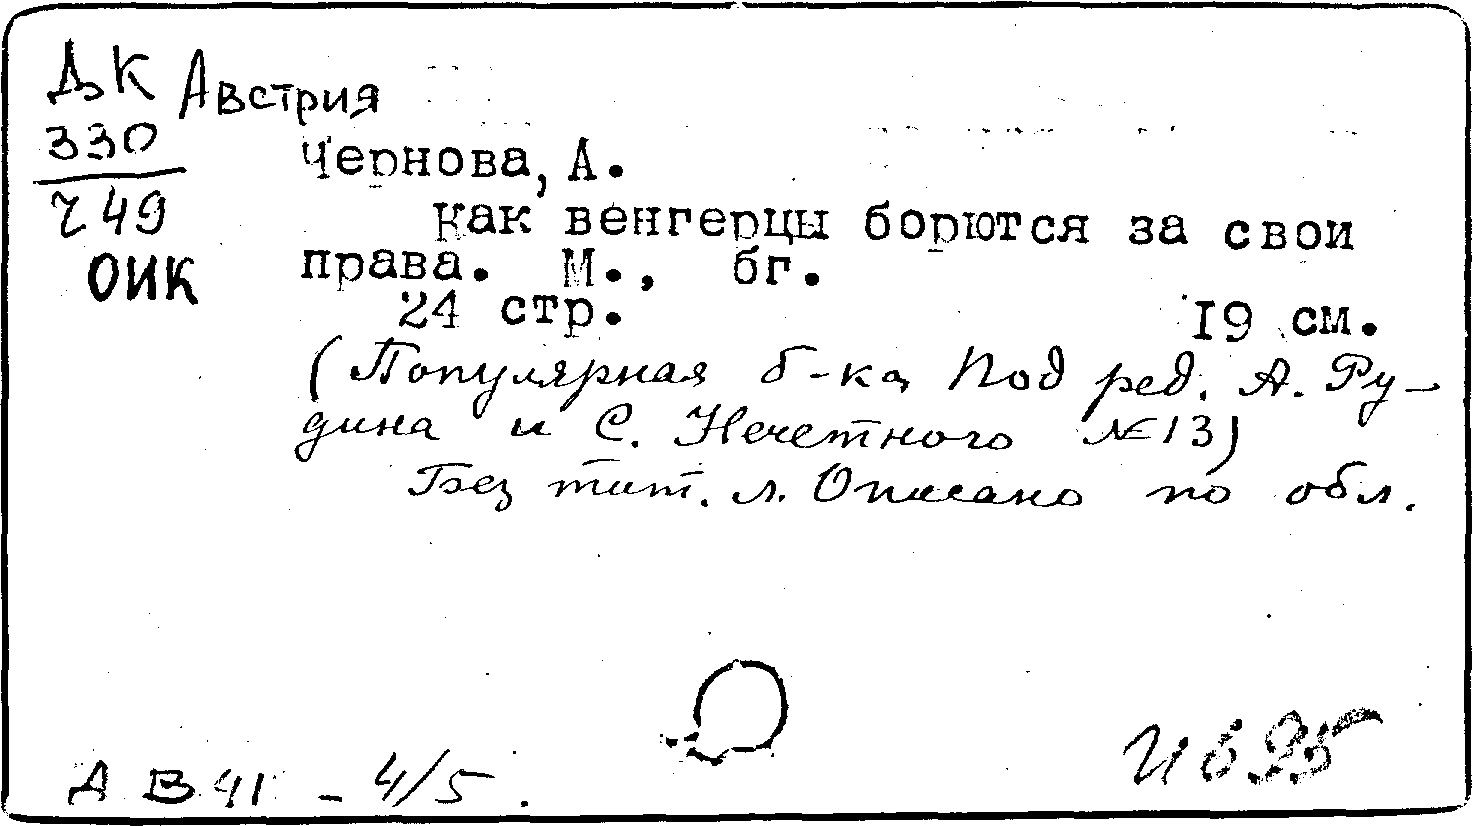 ДК Австрия
330
Ч49
ОИК
Чернова, А.
как венгерцы борются за свои
права. М., бг.
24 стр. 19 см.
(Популярная б-ка, Под ред. А. Ру-
дина и С. Нечетного №13)
Без тит. л. Описано по обл.
АВ41 - 4/5.